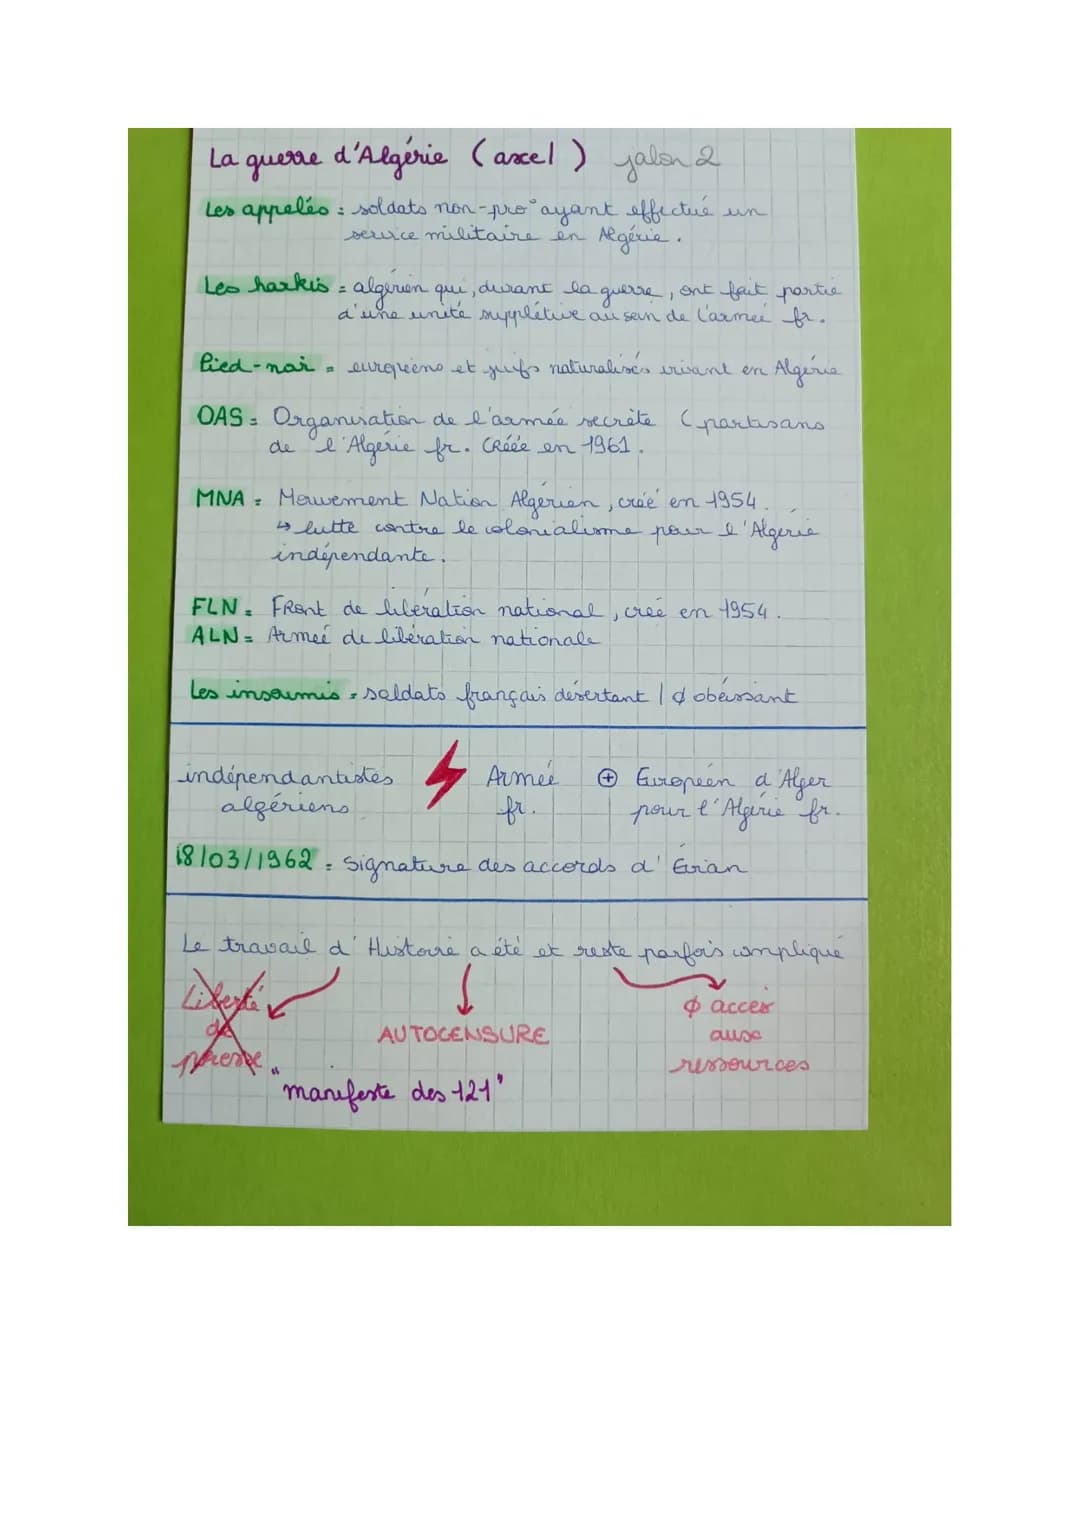 La guerre d'Algérie (axe 1) jalon 2
Les appelés : soldats non-pro° ayant effectué un
service militaire en Algérie.
Les harkis = algérien qui, durant la guerre, ont fait partie
d'une unité supplétive au sein de l'armée fr.
Pied-noir = européens et juifs naturalisés vivant en Algérie
OAS = Organisation de l'armée secrète (partisans
de l'Algérie fr. Créée en 1961.
MNA = Mouvement Nation Algérien, créé en 1954.
↳ lutte contre le colonialisme pour l'Algérie
indépendante.
FLN = FRont de libération national, créé en 1954.
ALN = Armée de libération nationale
Les insoumis = soldats français désertant / ∅ obéissant
indépendantistes ⚡ Armée ⊕ Européen d'Alger
algériens fr. pour l'Algérie fr.
18/03/1962 = signature des accords d'Evian
Le travail d'Histoire a été et reste parfois compliqué
Liberté
de
presse
AUTOCENSURE
∅ acces
aux
ressources
"manifeste des 121"